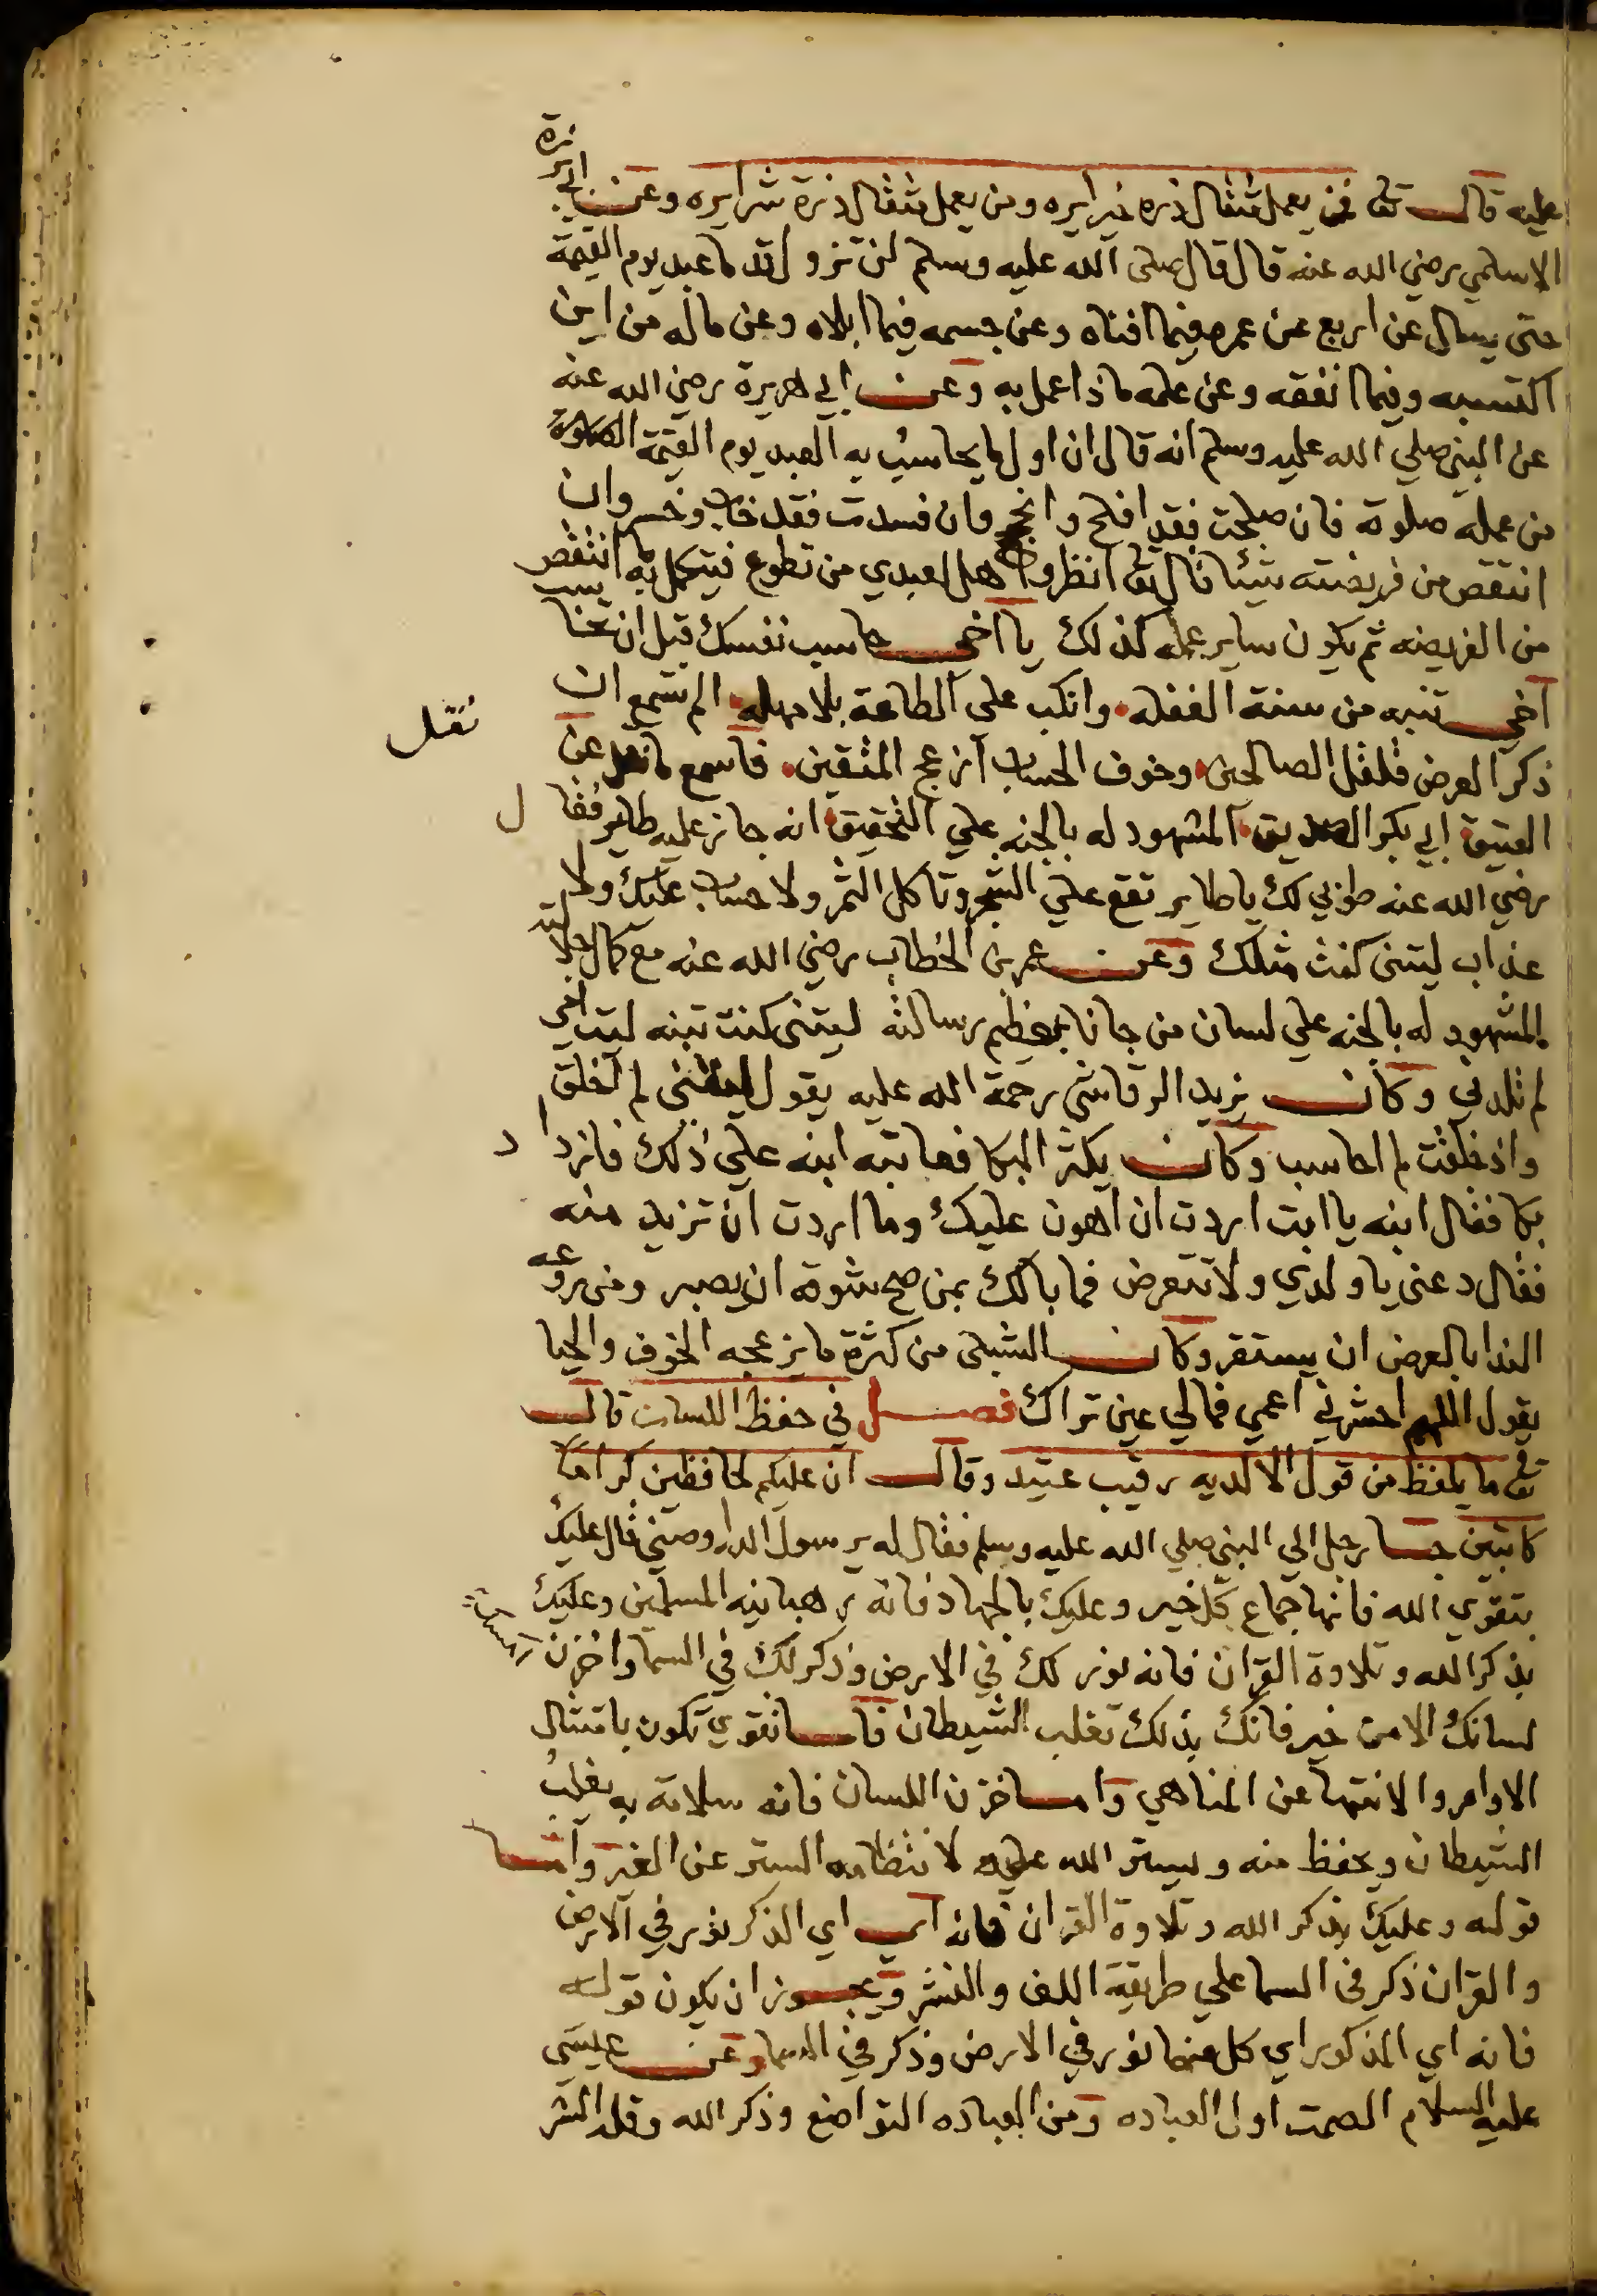 عليه قال تعالى فمن يعمل مثقال ذرة خيرا يره ومن يعمل مثقال ذرة شرا يره وعن ابي برزة
الاسلمي رضي الله عنه قال قال صلى الله عليه وسلم لن تزول قدما عبد يوم القيمة
حتى يسال عن اربع عن عمره فيما افناه وعن جسمه فيما ابلاه وعن ماله من اين
اكتسبه وفيما انفقه وعن علمه ماذا عمل به وعن ابي هريرة رضي الله عنه
عن النبي صلي الله عليه وسلم انه قال ان اول ما يحاسب به العبد يوم القيمة الصلوة
من عمله صلوة فان صلحت فقد افلح وانجح وان فسدت فقد خاب وخسر وان
انتقص من فريضته شيئا قال تعالى انظروا هل لعبدي من تطوع فيتكمل به ما انتقص
من الفريضه ثم يكون ساير عمله كذلك يا اخي حاسب نفسك قبل ان تحاسب
اخي تنبه من سنة الغفله وانكب على الطاعة بلا مهله الم تسمع ان
ذكر العرض قلقل الصالحين وخوف الحساب ازعج المتقين فاسمع ما نقل عن
نقل
العتيق ابي بكر الصديق المشهود له بالجنه علي التحقيق انه جاز عليه طاير فقال
رضي الله عنه طوبي لك يا طاير تقع علي الشجر وتاكل الثمر ولا حساب عليك ولا
عذاب ليتني كنت مثلك وعن عمر بن الخطاب رضي الله عنه مع كمال جلالته
المشهود له بالجنه علي لسان من جانا رسالته ليتني كنت تبنه ليت امي
لم تلدني وكان يزيد الرقاشي رحمة الله عليه يقول ليتني لم اخلق
واذ خلقت لم احاسب وكان يكثر البكا فعاتبه ابنه علي ذلك فازداد
بكا فقال ابنه يا ابت اردت ان اهون عليك وما اردت ان تزيد منه
فقال دعني يا ولدي ولا تتعرض فما بالك بمن صح ان يصبر ومن روعه
الندا بالعرض ان يستقر وكان الشبلي من كثرة ما يزعجه الخوف والحيا
يقول اللهم احشرني اعمي فمالي عين تراك فصل في حفظ اللسان قال
تعالى ما يلفظ من قول الا لديه رقيب عتيد وقال ان عليكم لحافظين كراما
كاتبين جا رجل الي النبي صلي الله عليه وسلم فقال له يرسول الله اوصني قال عليك
بتقوي الله فانها جماع كل خير وعليك بالجهاد فانه رهبانيه المسلمين وعليك
بذكر الله وتلاوة القران فانه نور لك في الارض وذكر لك في السما واخزن
لسانك الا من خير فانك بذلك تغلب الشيطان فاما تقوي تكون بامتثال
الاوامر والانتها عن المناهي واما خزن اللسان فانه سلامة به يغلب
الشيطان ويحفظ منه ويستر الله عليه لانتظامه الستر عن الغير واما
قوله وعليك بذكر الله وتلاوة القران فانه اي الذكر نور في الارض
والقران ذكر في السما علي طريقة اللف والنشر ويجوز ان يكون قوله
فانه اي المذكور اي كل منهما نور في الارض وذكر في السما وعن عيسي
عليه السلام الصمت اول العباده ومن العباده التواضع وذكر الله وقلة الشر